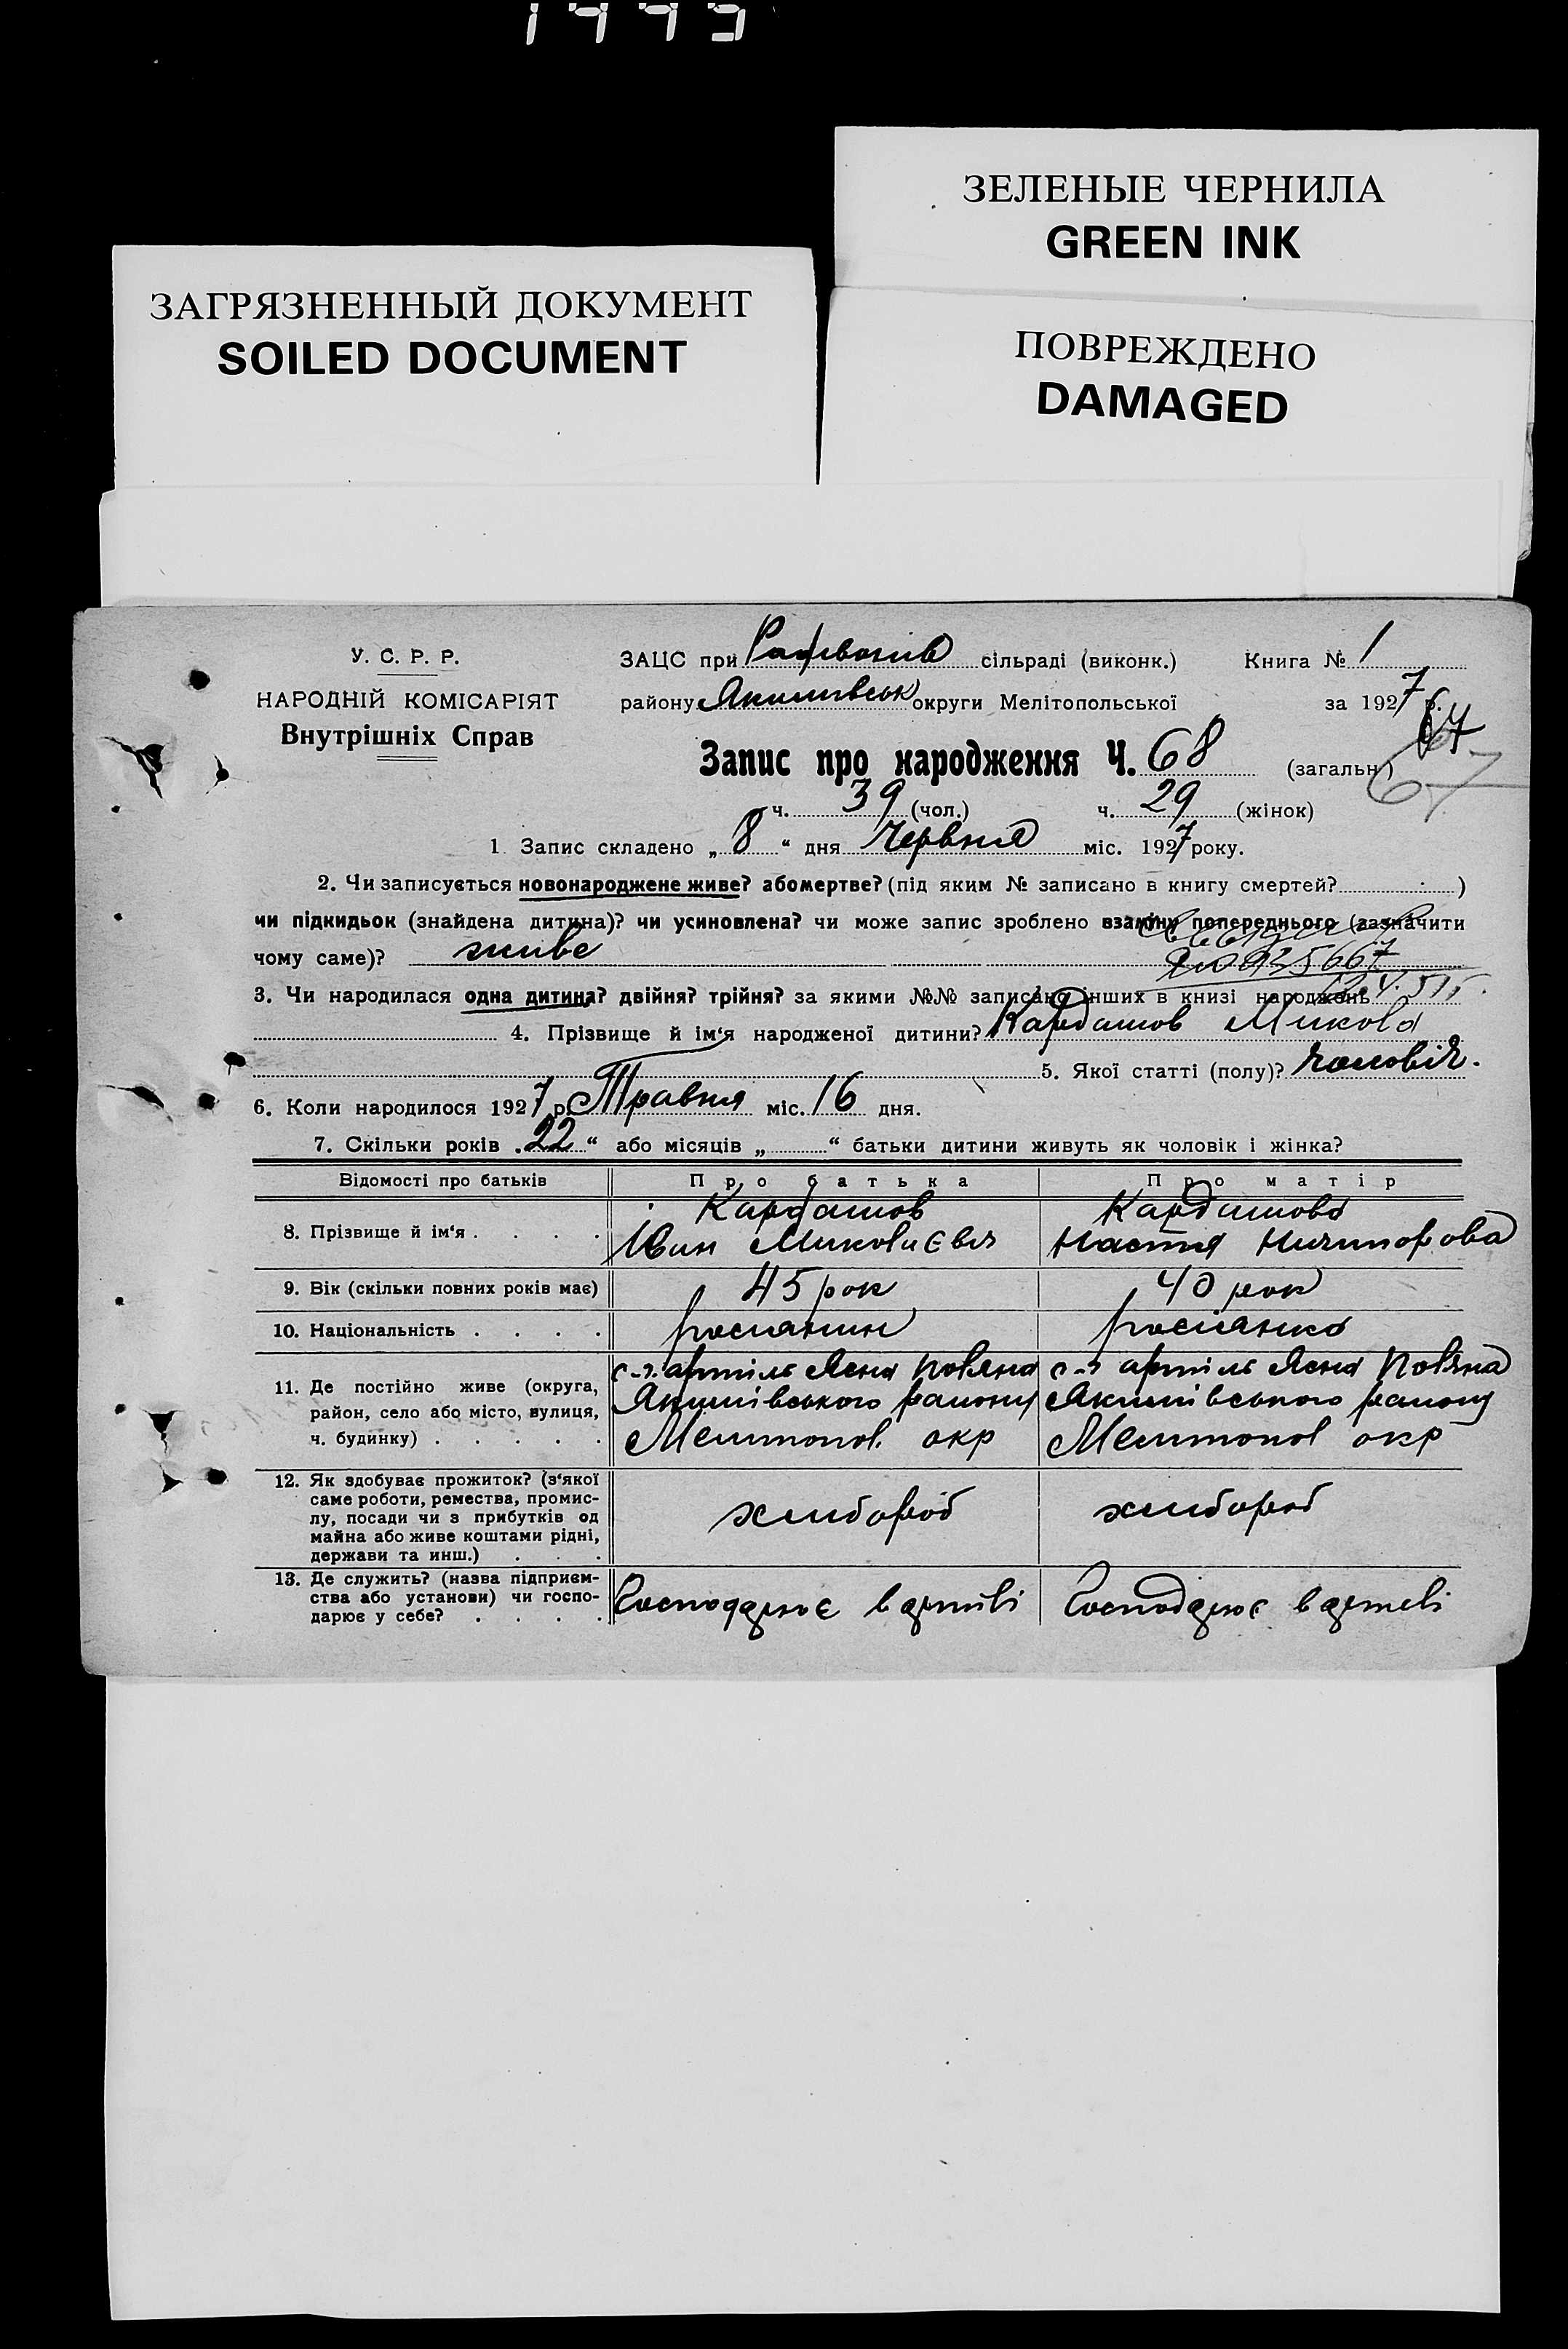 1995
ЗЕЛЕНЫЕ ЧЕРНИЛА
GREEN INK
ЗАГРЯЗНЕННЫЙ ДОКУМЕНТ
SOILED DOCUMENT
ПОВРЕЖДЕНО
DAMAGED
У. С. Р. Р.
НАРОДНІЙ КОМІСАРІЯТ
Внутрішніх Справ
ЗАЦС при сільраді (виконк.) Книга № 1
району Якимівськ округи Мелітопольської за 1927 р.
67
Запис про народження Ч. 68 (загальн.)
67
ч. 39 (чол.) ч. 29 (жінок)
1 Запис складено „ 8 “ дня Червня міс. 1927 року.
2. Чи записується новонароджене живе? або мертве? (під яким № записано в книгу смертей? )
чи підкидьок (знайдена дитина)? чи усиновлена? чи може запис зроблено взаміну попереднього (зазначити
чому саме)? живе
3. Чи народилася одна дитина? двійня? трійня? за якими №№ записано інших в книзі народжень
4. Прізвище й ім‘я народженої дитини? Кардашов Микола
5. Якої статті (полу)? чоловіч.
6. Коли народилося 1927 р. Травня міс. 16 дня.
7. Скільки років „ 22 “ або місяців „ “ батьки дитини живуть як чоловік і жінка?
Відомості про батьків Про батька Про матір
8. Прізвище й ім‘я . . . . Кардашов Кардашова
Іван Миколаєвя Настя Ничипорова
9. Вік (скільки повних років має) 45 рок 40 рок
10. Національність . . . . росіянин росіянка
11. Де постійно живе (округа, с-г. артіль Ясна Поляна с-г артіль Ясна Поляна
район, село або місто, вулиця, Якимівського району Якимівського району
ч. будинку) . . . . . Мелитопол. окр Мелитопол окр
12. Як здобуває прожиток? (з‘якої
саме роботи, ремества, промис-
лу, посади чи з прибутків од хлибороб хлибороб
майна або живе коштами рідні,
держави та инш.) . . .
13. Де служить? (назва підприєм-
ства або установи) чи госпо- Господарює в артілі Господарює в артелі
дарює у себе? . . . .